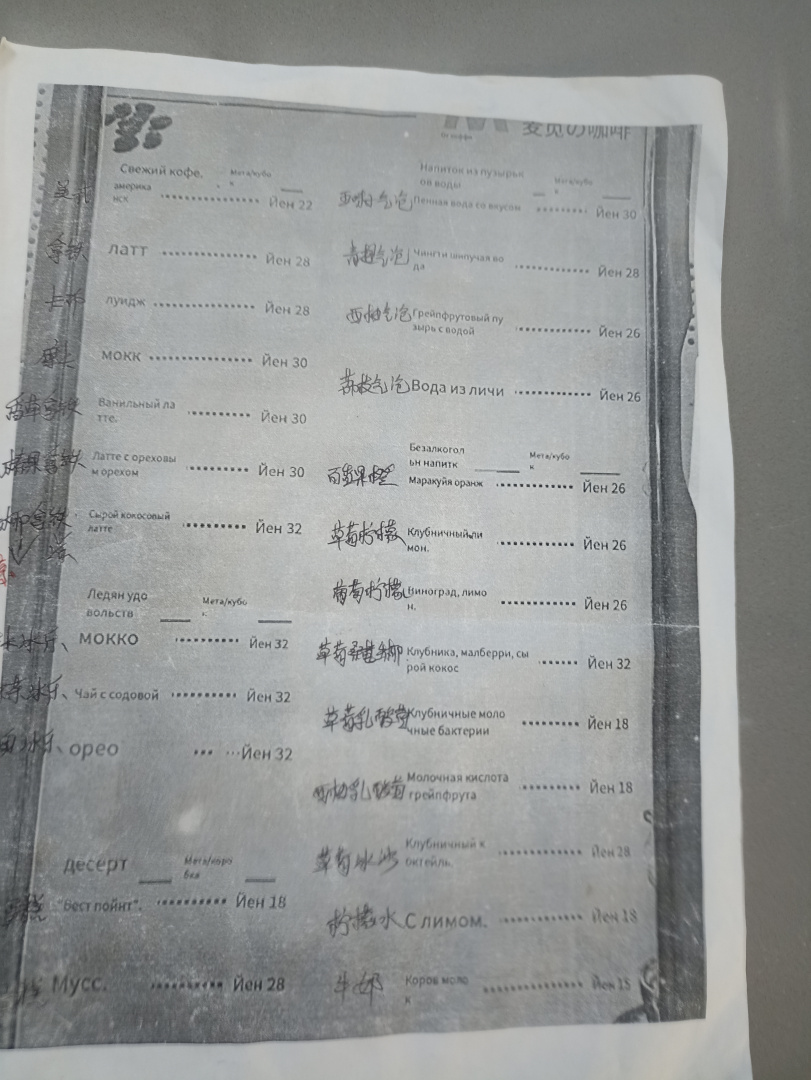 麦觅の咖啡
Свежий кофе.
Мета/кубо
к
美式
америка
нск
Йен 22
拿铁
латт
Йен 28
луидж
Йен 28
мокк
Йен 30
香草拿铁
Ванильный ла
тте.
Йен 30
榛果拿铁
Латте с ореховы
м орехом
Йен 30
Сырой кокосовый
латте
Йен 32
Ледян удо
вольств
Мета/кубо
к
мокко
Йен 32
Чай с содовой
Йен 32
орео
Йен 32
десерт
Мета/коро
бка
"Вест пойнт".
Йен 18
Мусс.
Йен 28
Напиток из пузырьк
ов воды
Мета/кубо
к
Пенная вода со вкусом
Йен 30
青提气泡
шипучая во
да
Йен 28
西柚气泡
Грейпфрутовый пу
зырь с водой
Йен 26
荔枝气泡
Вода из личи
Йен 26
Безалкогол
ьн напитк
Мета/кубо
к
百香果橙
Маракуйя оранж
Йен 26
草莓柠檬
Клубничный ли
мон.
Йен 26
葡萄柠檬
Виноград, лимо
н.
Йен 26
草莓桑葚生椰
Клубника, малберри, сы
рой кокос
Йен 32
草莓乳酸菌
Клубничные моло
чные бактерии
Йен 18
西柚乳酸菌
Молочная кислота
грейпфрута
Йен 18
草莓冰沙
Клубничный к
октейль.
Йен 28
柠檬水
С лимом.
Йен 18
牛奶
Коров моло
к
Йен 15